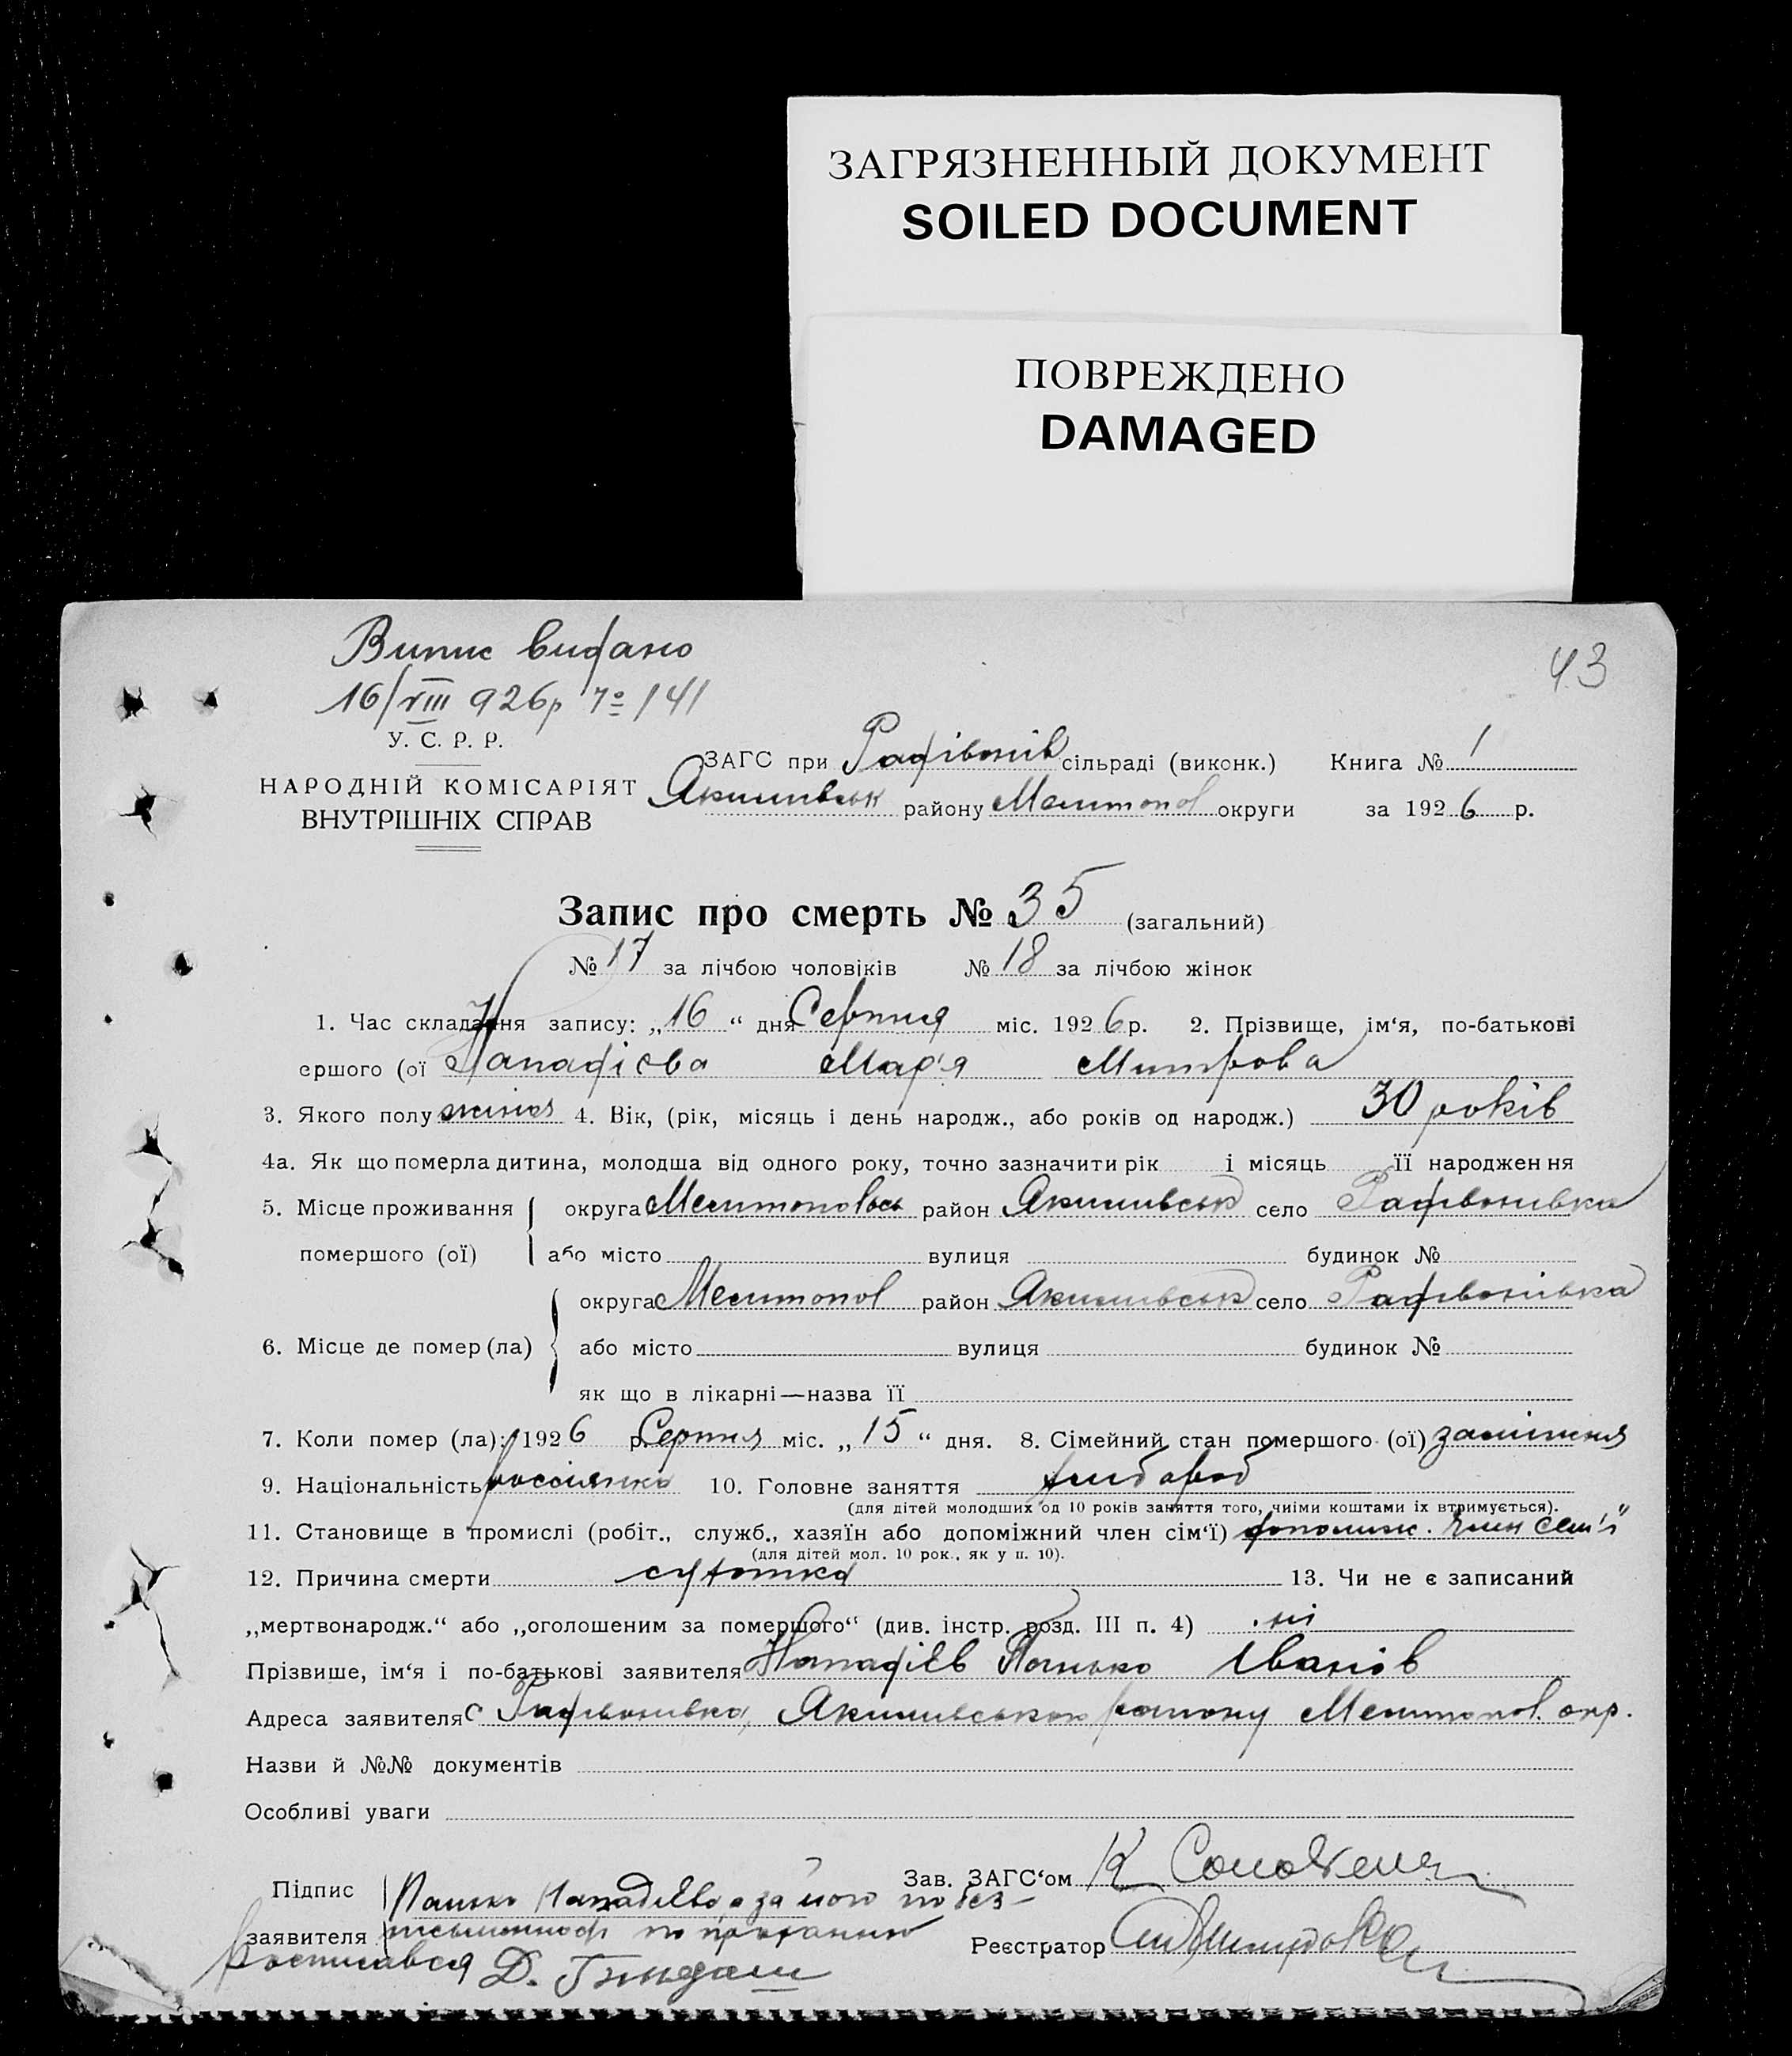 ЗАГРЯЗНЕННЫЙ ДОКУМЕНТ
SOILED DOCUMENT
ПОВРЕЖДЕНО
DAMAGED
Випис видано
16/VIII 926р № 141
43
У. С. Р. Р.
НАРОДНІЙ КОМІСАРІЯТ
ВНУТРІШНІХ СПРАВ
ЗАГС при Радівонів сільраді (виконк.) Книга № 1
Якимівськ району Мелитопол округи за 1926 р.
Запис про смерть № 35 (загальний)
№ 17 за лічбою чоловіків № 18 за лічбою жінок
1. Час складання запису: „16“ дня Серпня міс. 1926 р. 2. Прізвище, ім‘я, по-батькові
ершого (ої Мар'я Митрова
3. Якого полу жіноч 4. Вік, (рік, місяць і день народж., або років од народж.) 30 років
4а. Як що померла дитина, молодша від одного року, точно зазначити рік і місяць її народження
5. Місце проживання округа Мелитопольськ район Якимівськ село Радівонівка
помершого (ої) або місто вулиця будинок №
округа Мелитопол район Якимівськ село Радівонівка
6. Місце де помер (ла) або місто вулиця будинок №
як що в лікарні—назва її
7. Коли помер (ла): 1926 р. Серпня міс. „15“ дня. 8. Сімейний стан помершого (ої) заміжня
9. Національність россіянка 10. Головне заняття хлібороб
(для дітей молодших од 10 років заняття того, чиїми коштами їх втримується).
11. Становище в промислі (робіт., служб., хазяїн або допоміжний член сім‘ї) допоміж. член сем'ї
(для дітей мол. 10 рок., як у п. 10).
12. Причина смерти сухотка 13. Чи не є записаний
„мертвонародж.“ або „оголошеним за помершого“ (див. інстр. розд. III п. 4) ні
Прізвише, ім‘я і по-батькові заявителя Панько Іванів
Адреса заявителя с Радивонивка, Якимивського району Мелитопол. окр.
Назви й №№ документів
Особливі уваги
Підпис Панько а за його по без-
Зав. ЗАГС‘ом К
заявителя письменности по проханню
Реєстратор
Росписався Д.